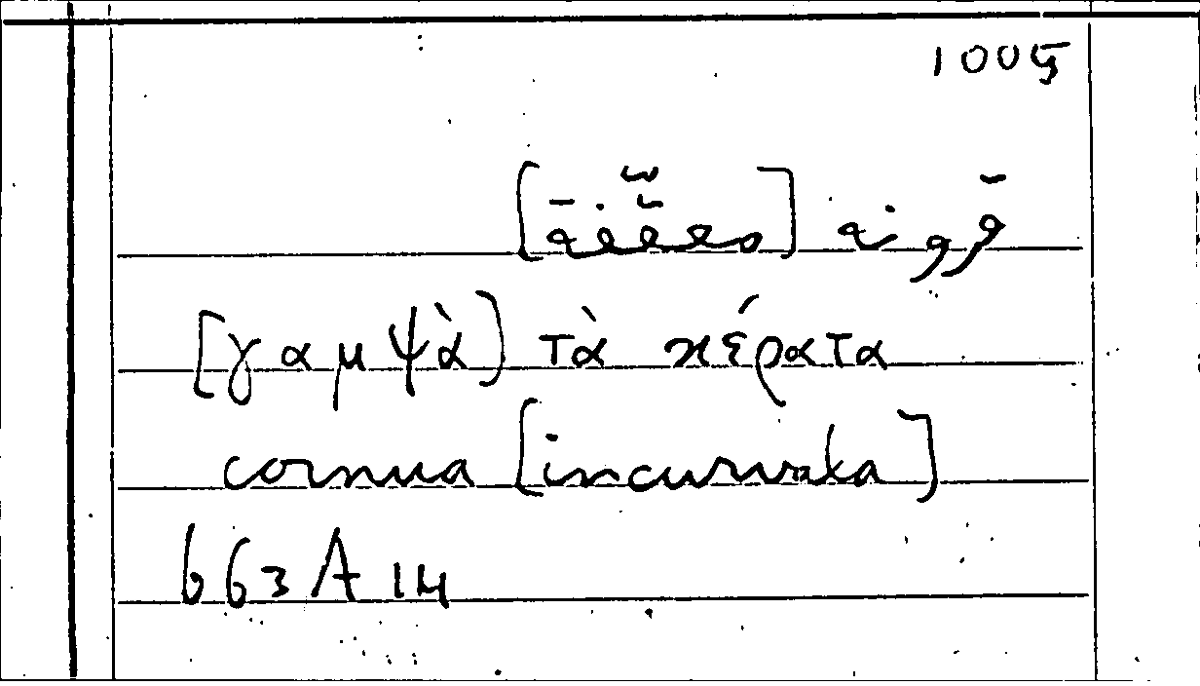 1005
[γαμψὰ] τὰ κέρατα
cornua [incurvata]
663 A 14